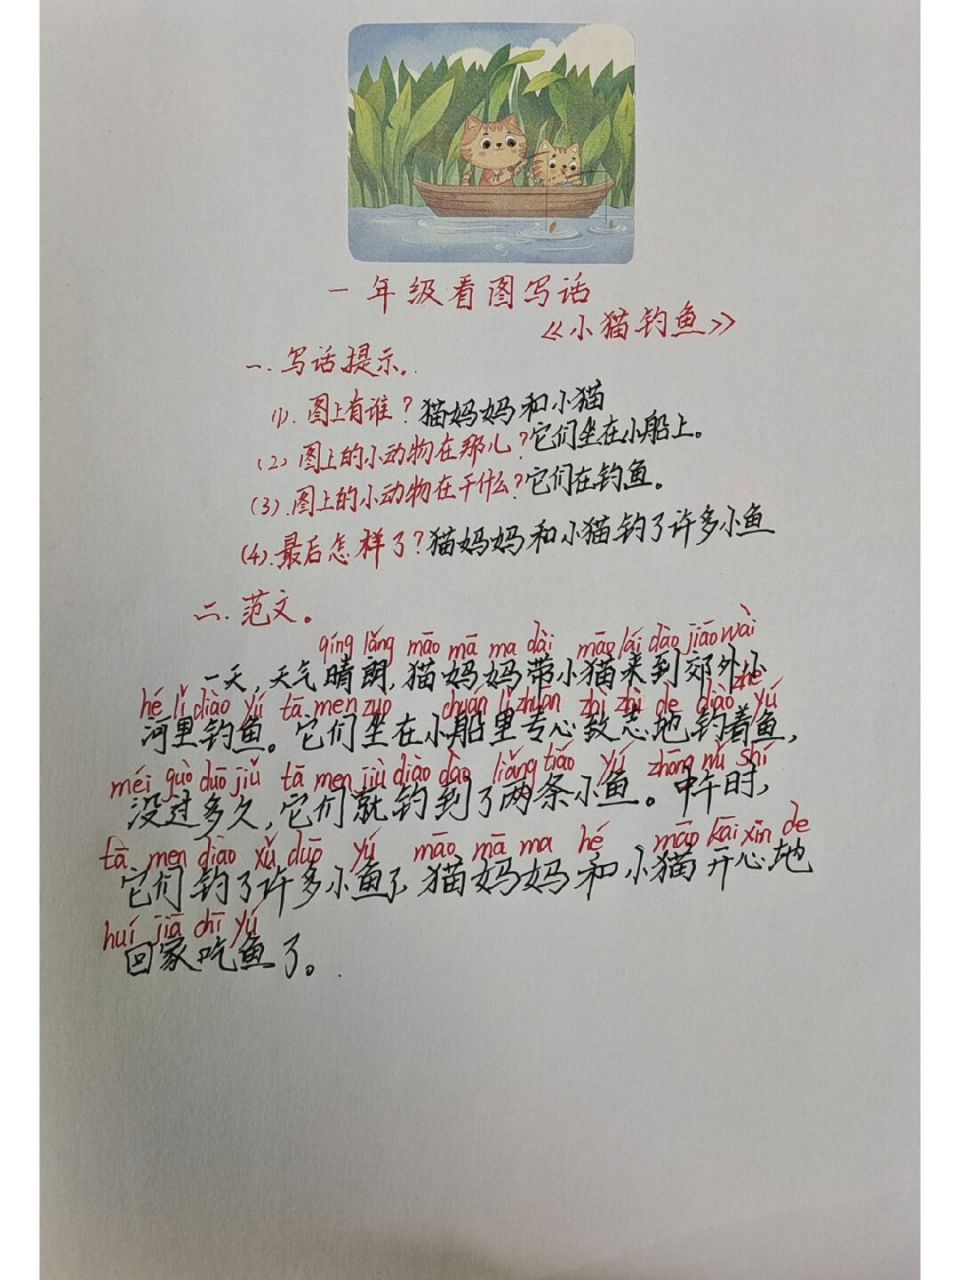 一年级看图写话
《小猫钓鱼》
一.写话提示。
(1).图上有谁?猫妈妈和小猫
(2)图上的小动物在那儿?它们坐在小船上。
(3).图上的小动物在干什么?它们在钓鱼。
(4).最后怎样了?猫妈妈和小猫钓了许多小鱼
二.范文。
qíng lǎng māo mā ma dài māo lái dào jiāo wài
一天,天气晴朗,猫妈妈带小猫来到郊外小
hé lǐ diào yú tā men zuò chuán lǐ zhuān zhì zhì de diào zhe yú
河里钓鱼。它们坐在小船里专心致志地钓着鱼,
méi guò duō jiǔ tā men jiù diào dào liǎng tiáo yú zhōng wǔ shí
没过多久,它们就钓到了两条小鱼。中午时,
tā men diào xǔ duō yú māo mā ma hé māo kāi xīn de
它们钓了许多小鱼了,猫妈妈和小猫开心地
huí jiā chī yú
回家吃鱼了。